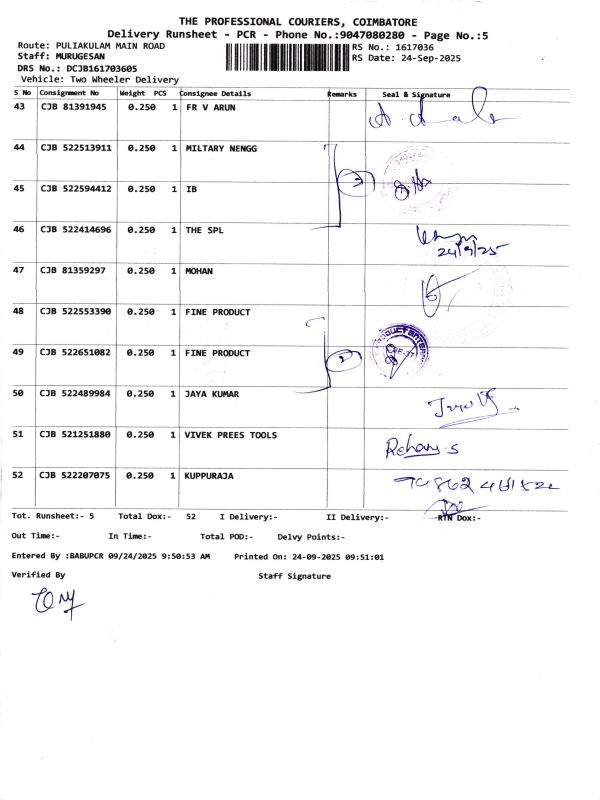 THE PROFESSIONAL COURIERS, COIMBATORE
Delivery Runsheet - PCR - Phone No.:9047080280 - Page No.:5
Route: PULIAKULAM MAIN ROAD RS No.: 1617036
Staff: MURUGESAN RS Date: 24-Sep-2025
DRS No.: DCJB161703605
Vehicle: Two Wheeler Delivery
S No Consignment No Weight PCS Consignee Details Remarks Seal & Signature
43 CJB 81391945 0.250 1 FR V ARUN
44 CJB 522513911 0.250 1 MILTARY NENGG
45 CJB 522594412 0.250 1 IB
46 CJB 522414696 0.250 1 THE SPL
24/9/25
47 CJB 81359297 0.250 1 MOHAN
48 CJB 522553390 0.250 1 FINE PRODUCT
49 CJB 522651082 0.250 1 FINE PRODUCT
50 CJB 522489984 0.250 1 JAYA KUMAR
51 CJB 521251880 0.250 1 VIVEK PREES TOOLS
52 CJB 522207075 0.250 1 KUPPURAJA
Tot. Runsheet:- 5 Total Dox:- 52 I Delivery:- II Delivery:- RTN Dox:-
Out Time:- In Time:- Total POD:- Delvy Points:-
Entered By :BABUPCR 09/24/2025 9:50:53 AM Printed On: 24-09-2025 09:51:01
Verified By Staff Signature